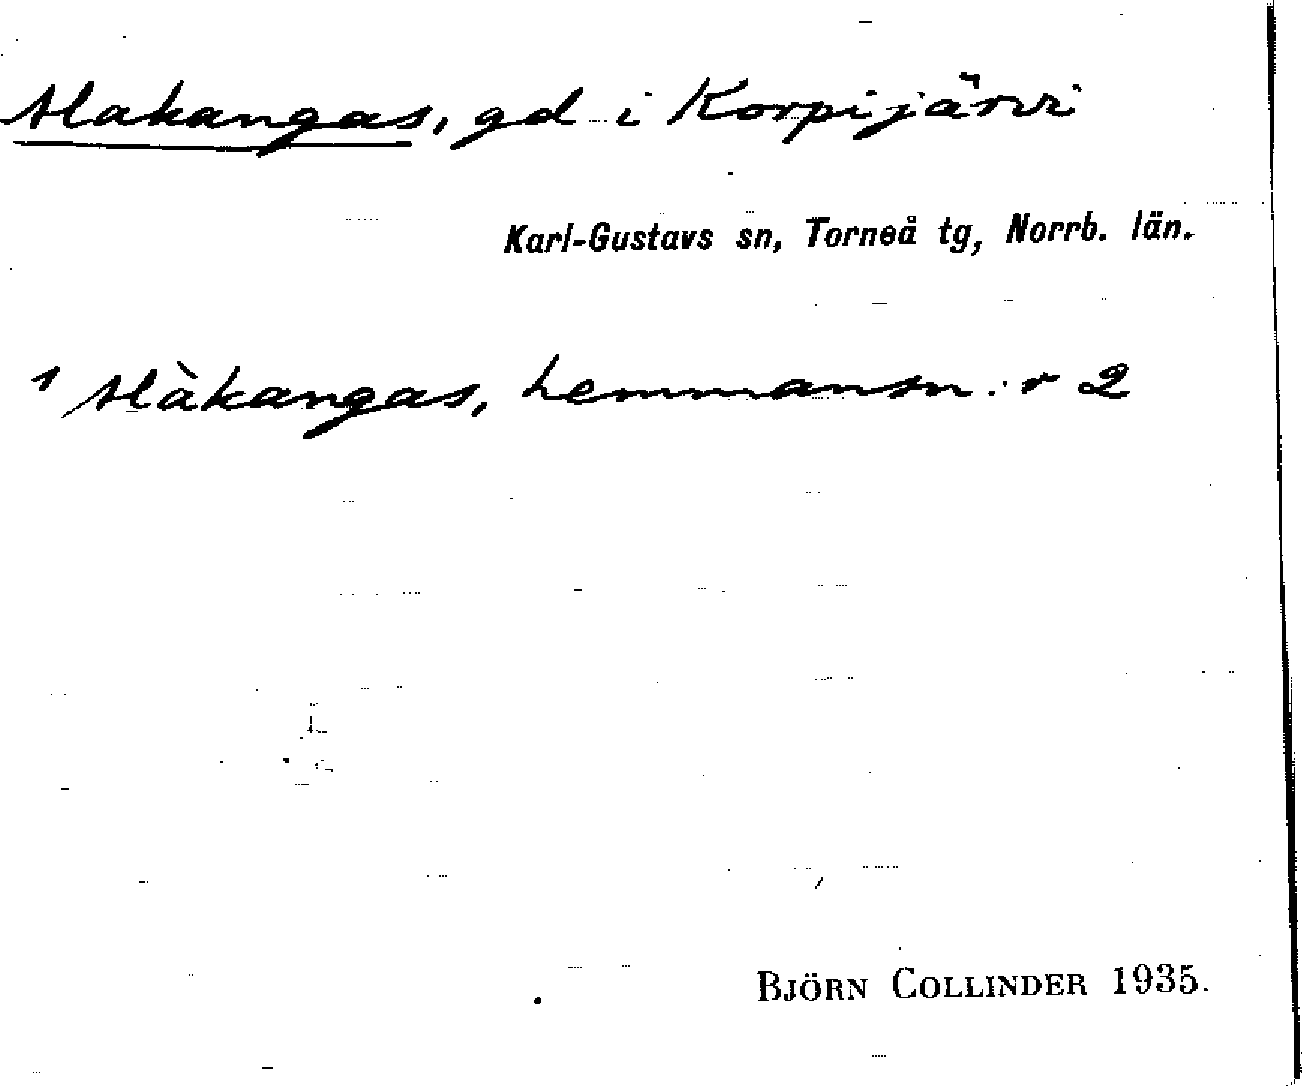 Alakangas, gd i Korpijärvi
Karl-Gustavs sn, Torneå tg, Norrb. län.
1 Alàkangas, hemmansn:r 2
BJÖRN COLLINDER 1935.